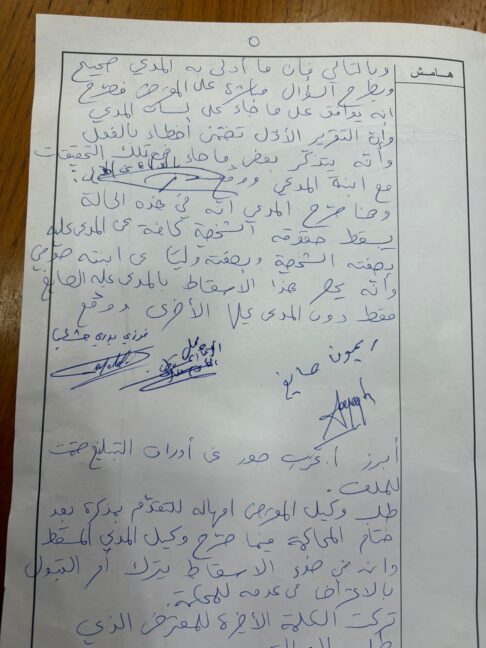 ٥
هامش
وبالتالي فإن ما أدلى به المدعي صحيح
وبطرح السؤال مباشرة على المعترض فصرّح
انه يوافق على ما جاء على لسان المدعي
وأن التقرير الأول تضمن أخطاء بالفعل
وأنه يتذكر بعض ما جاء في تلك التحقيقات
مع ابنة المدعي ووقع
وهنا صرّح المدعي أنه في هذه الحالة
يسقط حقوقه الشخصية كافة عن المدعى عليه
بصفته الشخصية وبصفته وليًا عن ابنته
وأنه يحصر هذا الاسقاط بالمدعى عليه الصايغ
فقط دون المدعى عليها الأخرى ووقع
فوزي بدري
الوكيل
ريمون صايغ
أبرز أ. صور عن أوراق التبليغ ضمت
للملف.
طلب وكيل المعترض امهاله للتقدّم بمذكرة بعد
ختام المحاكمة فيما صرّح وكيل المدعي المسقط
وانه في ضوء الاسقاط يترك أمر القبول
بالاعتراض من عدمه للمحكمة.
تركت الكلمة الأخيرة للمعترض الذي
طلب